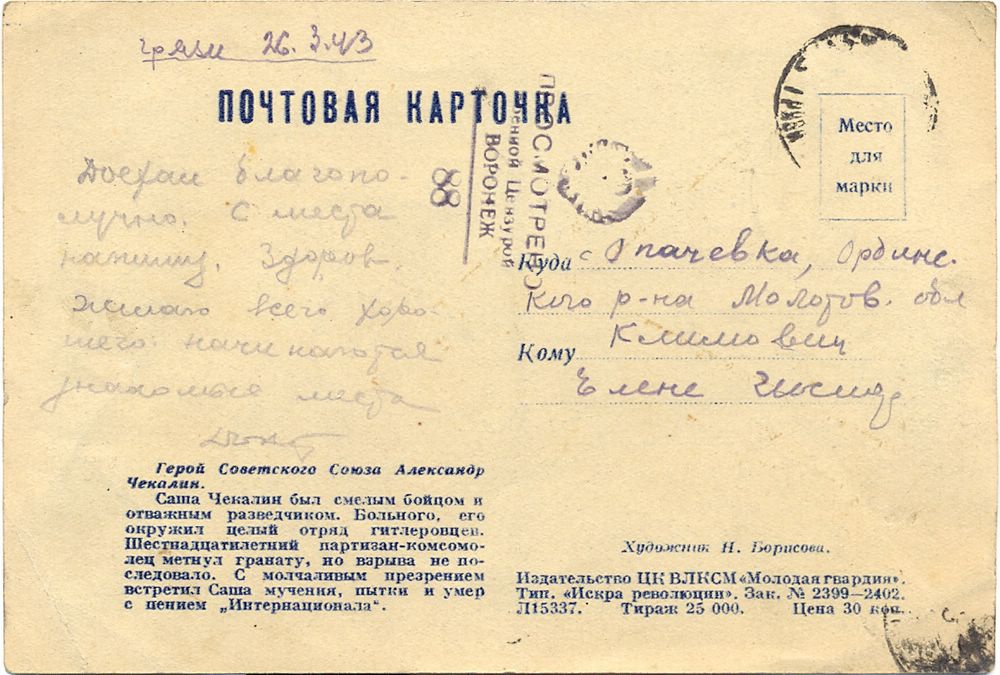 Грязи 26.3.43
ПОЧТОВАЯ КАРТОЧКА
Доехал благопо-
лучно. С места
напишу. Здоров.
Желаю всего хоро-
шего. начинаются
знакомые места
ПРОСМОТРЕНО
Военной Цензурой
ВОРОНЕЖ
88
Место
для
марки
Куда с Опачевка, Ординс.
кого р-на Молотов. обл
Кому Климович
Елене
Герой Советского Союза Александр
Чекалин.
Саша Чекалин был смелым бойцом и
отважным разведчиком. Больного, его
окружил целый отряд гитлеровцев.
Шестнадцатилетний партизан-комсомо-
лец метнул гранату, но взрыва не по-
следовало. С молчаливым презрением
встретил Саша мучения, пытки и умер
с пением „Интернационала“.
Художник Н. Борисова.
Издательство ЦК ВЛКСМ «Молодая гвардия».
Тип. «Искра революции». Зак. № 2399—2402.
Л15337. Тираж 25 000. Цена 30 коп.